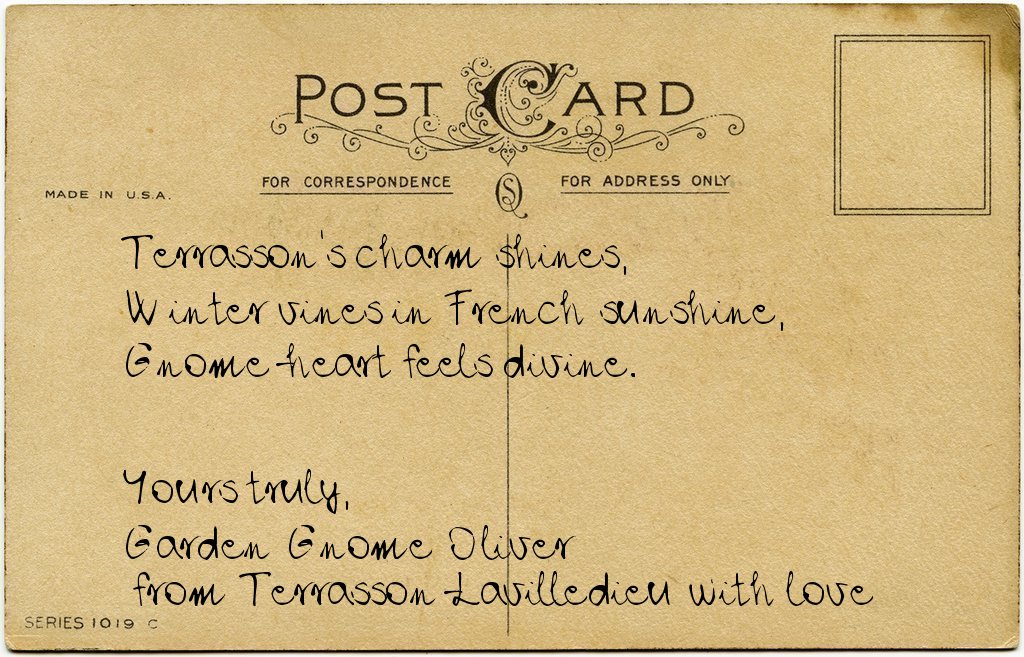 POST CARD
FOR CORRESPONDENCE
FOR ADDRESS ONLY
MADE IN U.S.A.
Terrasson's charm shines,
Winter vines in French sunshine,
Gnome heart feels divine.
Yours truly,
Garden Gnome Oliver
from Terrasson Lavilledieu with love
SERIES 1019 C